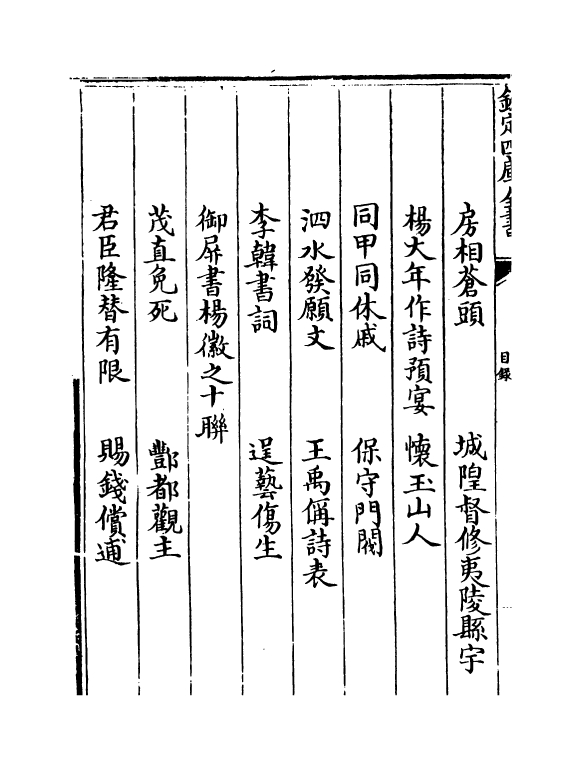 欽定四庫全書
目録
房相蒼頭　城隍督修夷陵縣宇
楊大年作詩預宴　懷玉山人
同甲同休戚　保守門閥
泗水發願文　王禹偁詩表
李韓書詞　逞藝傷生
御屏書楊徽之十聯
茂直免死　酆都觀主
君臣隆替有限　賜錢償逋